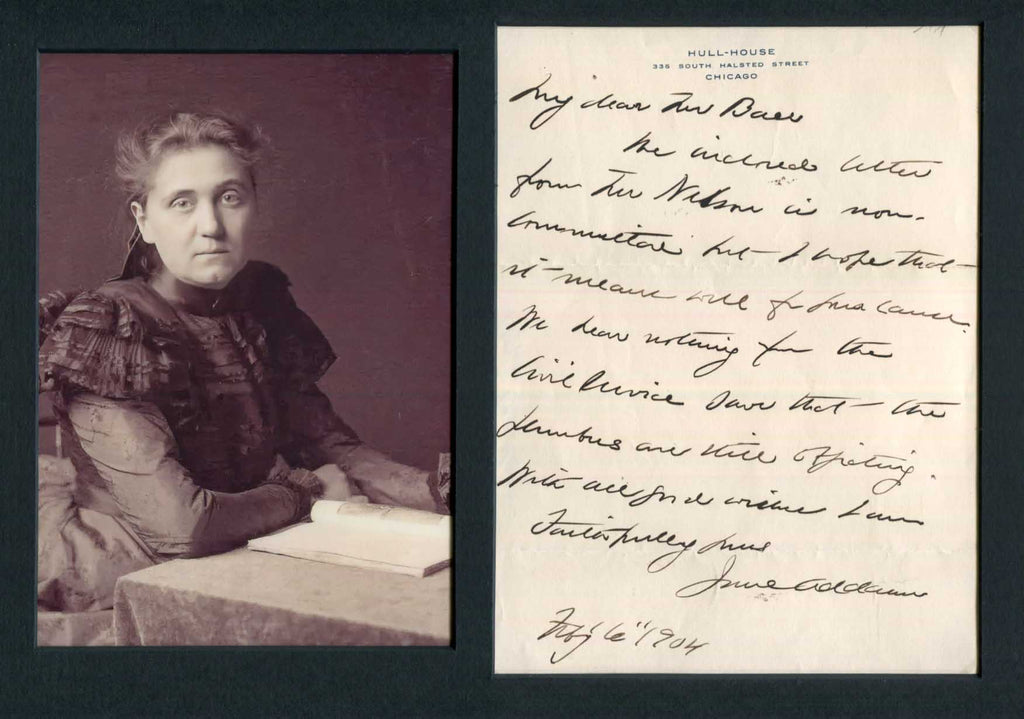 HULL-HOUSE
335 SOUTH HALSTED STREET
CHICAGO
My dear Mr Baer
The inclosed letter
from Mr Nelson is non-
committal but I hope that
it means well for your cause.
We hear nothing from the
Civil Service save that the
plumbers are still
With all good wishes I am
Faithfully yours
Jane Addams
Feby 6" 1904